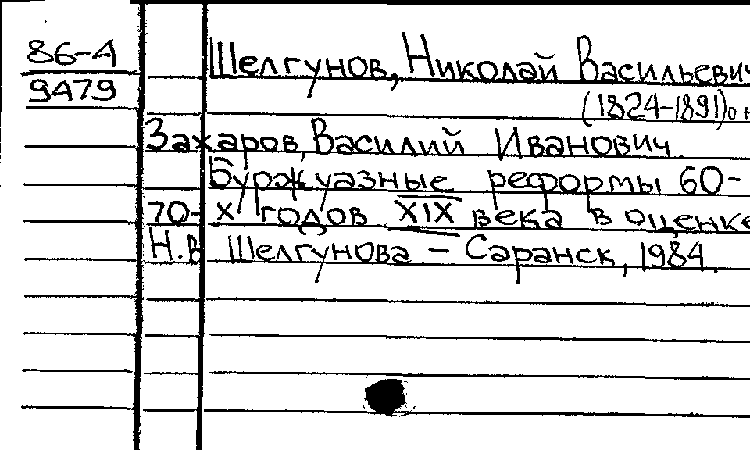 86-4
9479
Шелгунов, Николай Васильевич
(1824-1891) о н
Захаров, Василий Иванович.
Буржуазные реформы 60-
70-х годов XIX века в оценке
Н.В Шелгунова – Саранск, 1984.